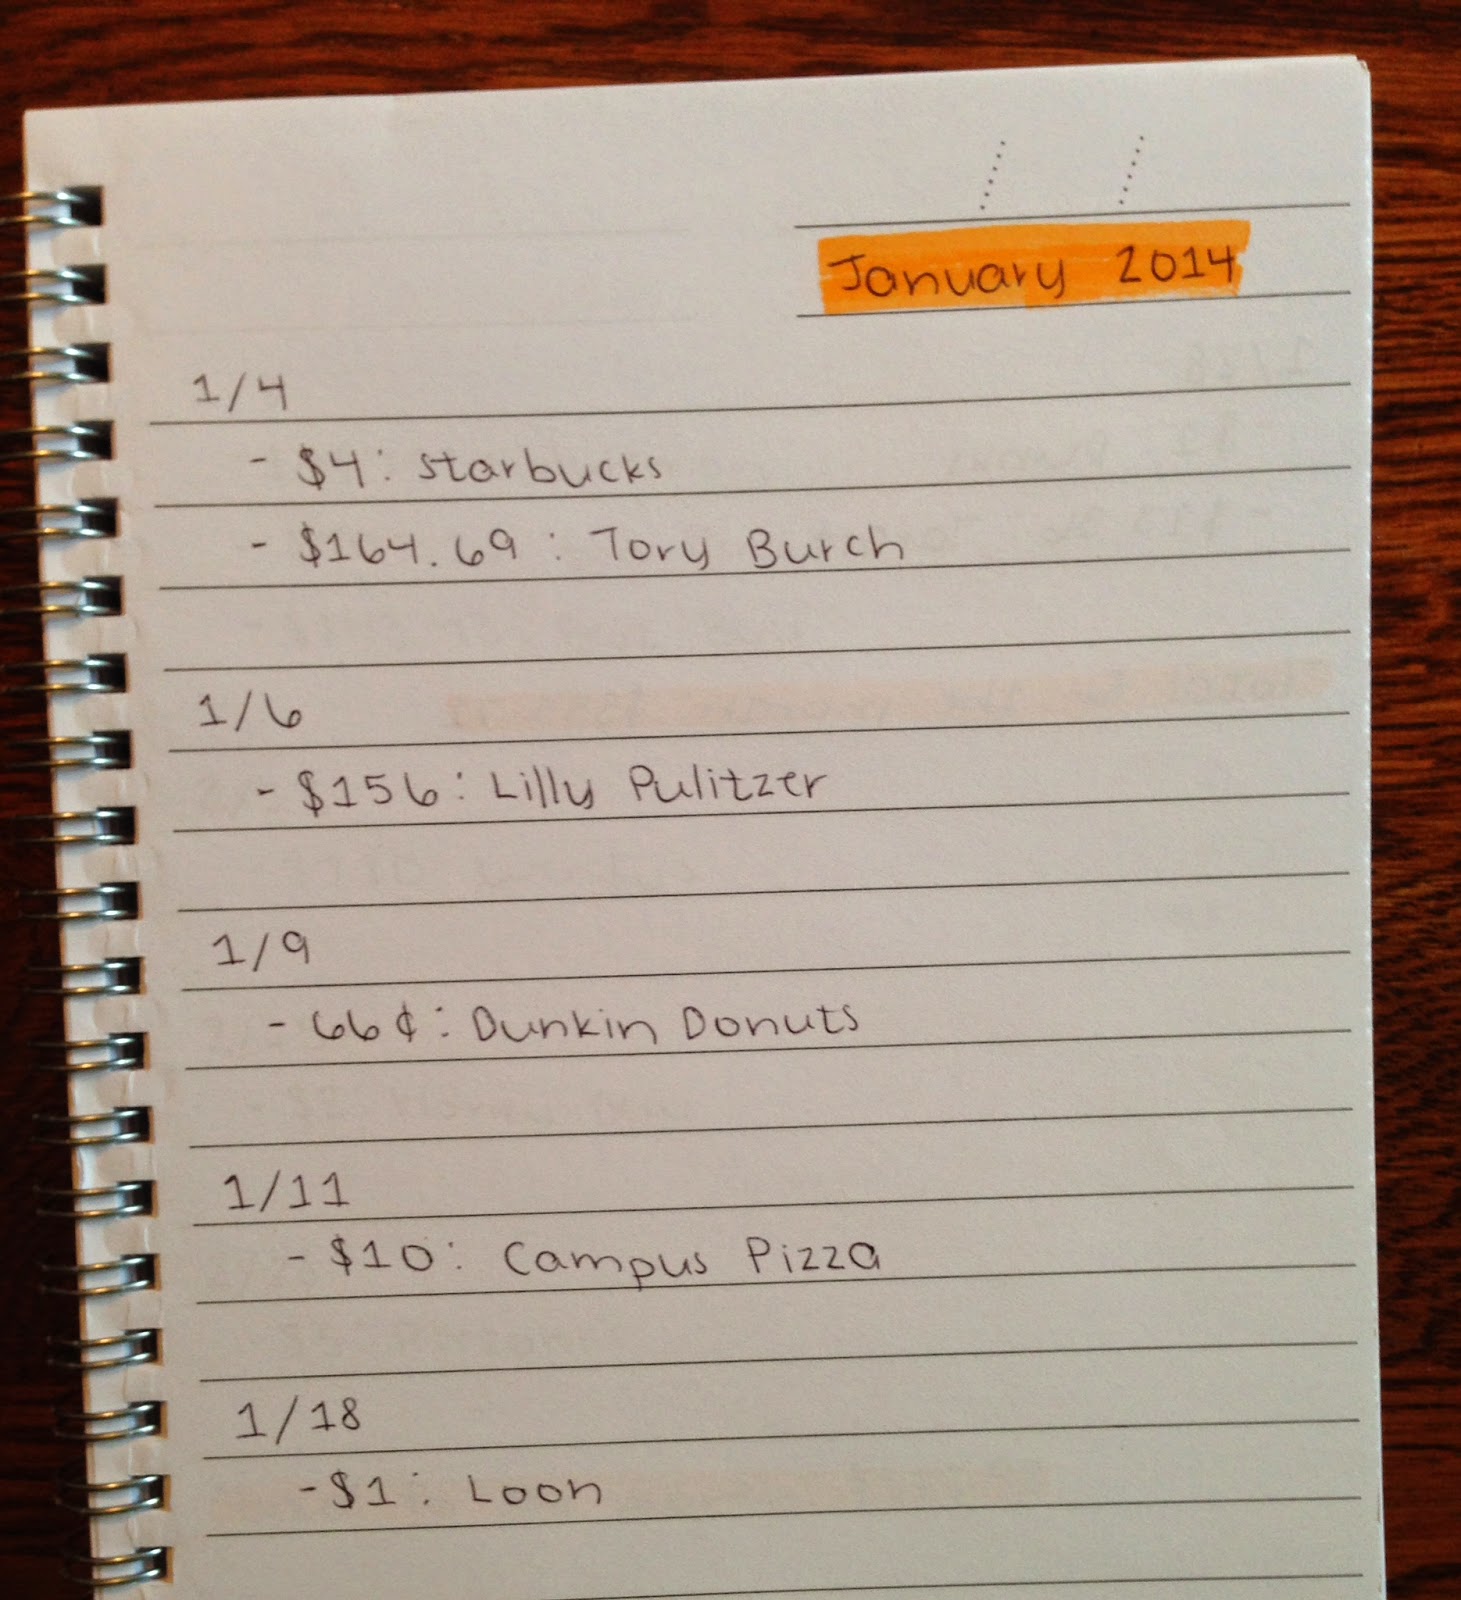 January 2014
1/4
- $4: starbucks
- $164.69: Tory Burch
1/6
- $156: Lilly Pulitzer
1/9
- 66¢: Dunkin Donuts
1/11
- $10: Campus Pizza
1/18
- $1: Loon